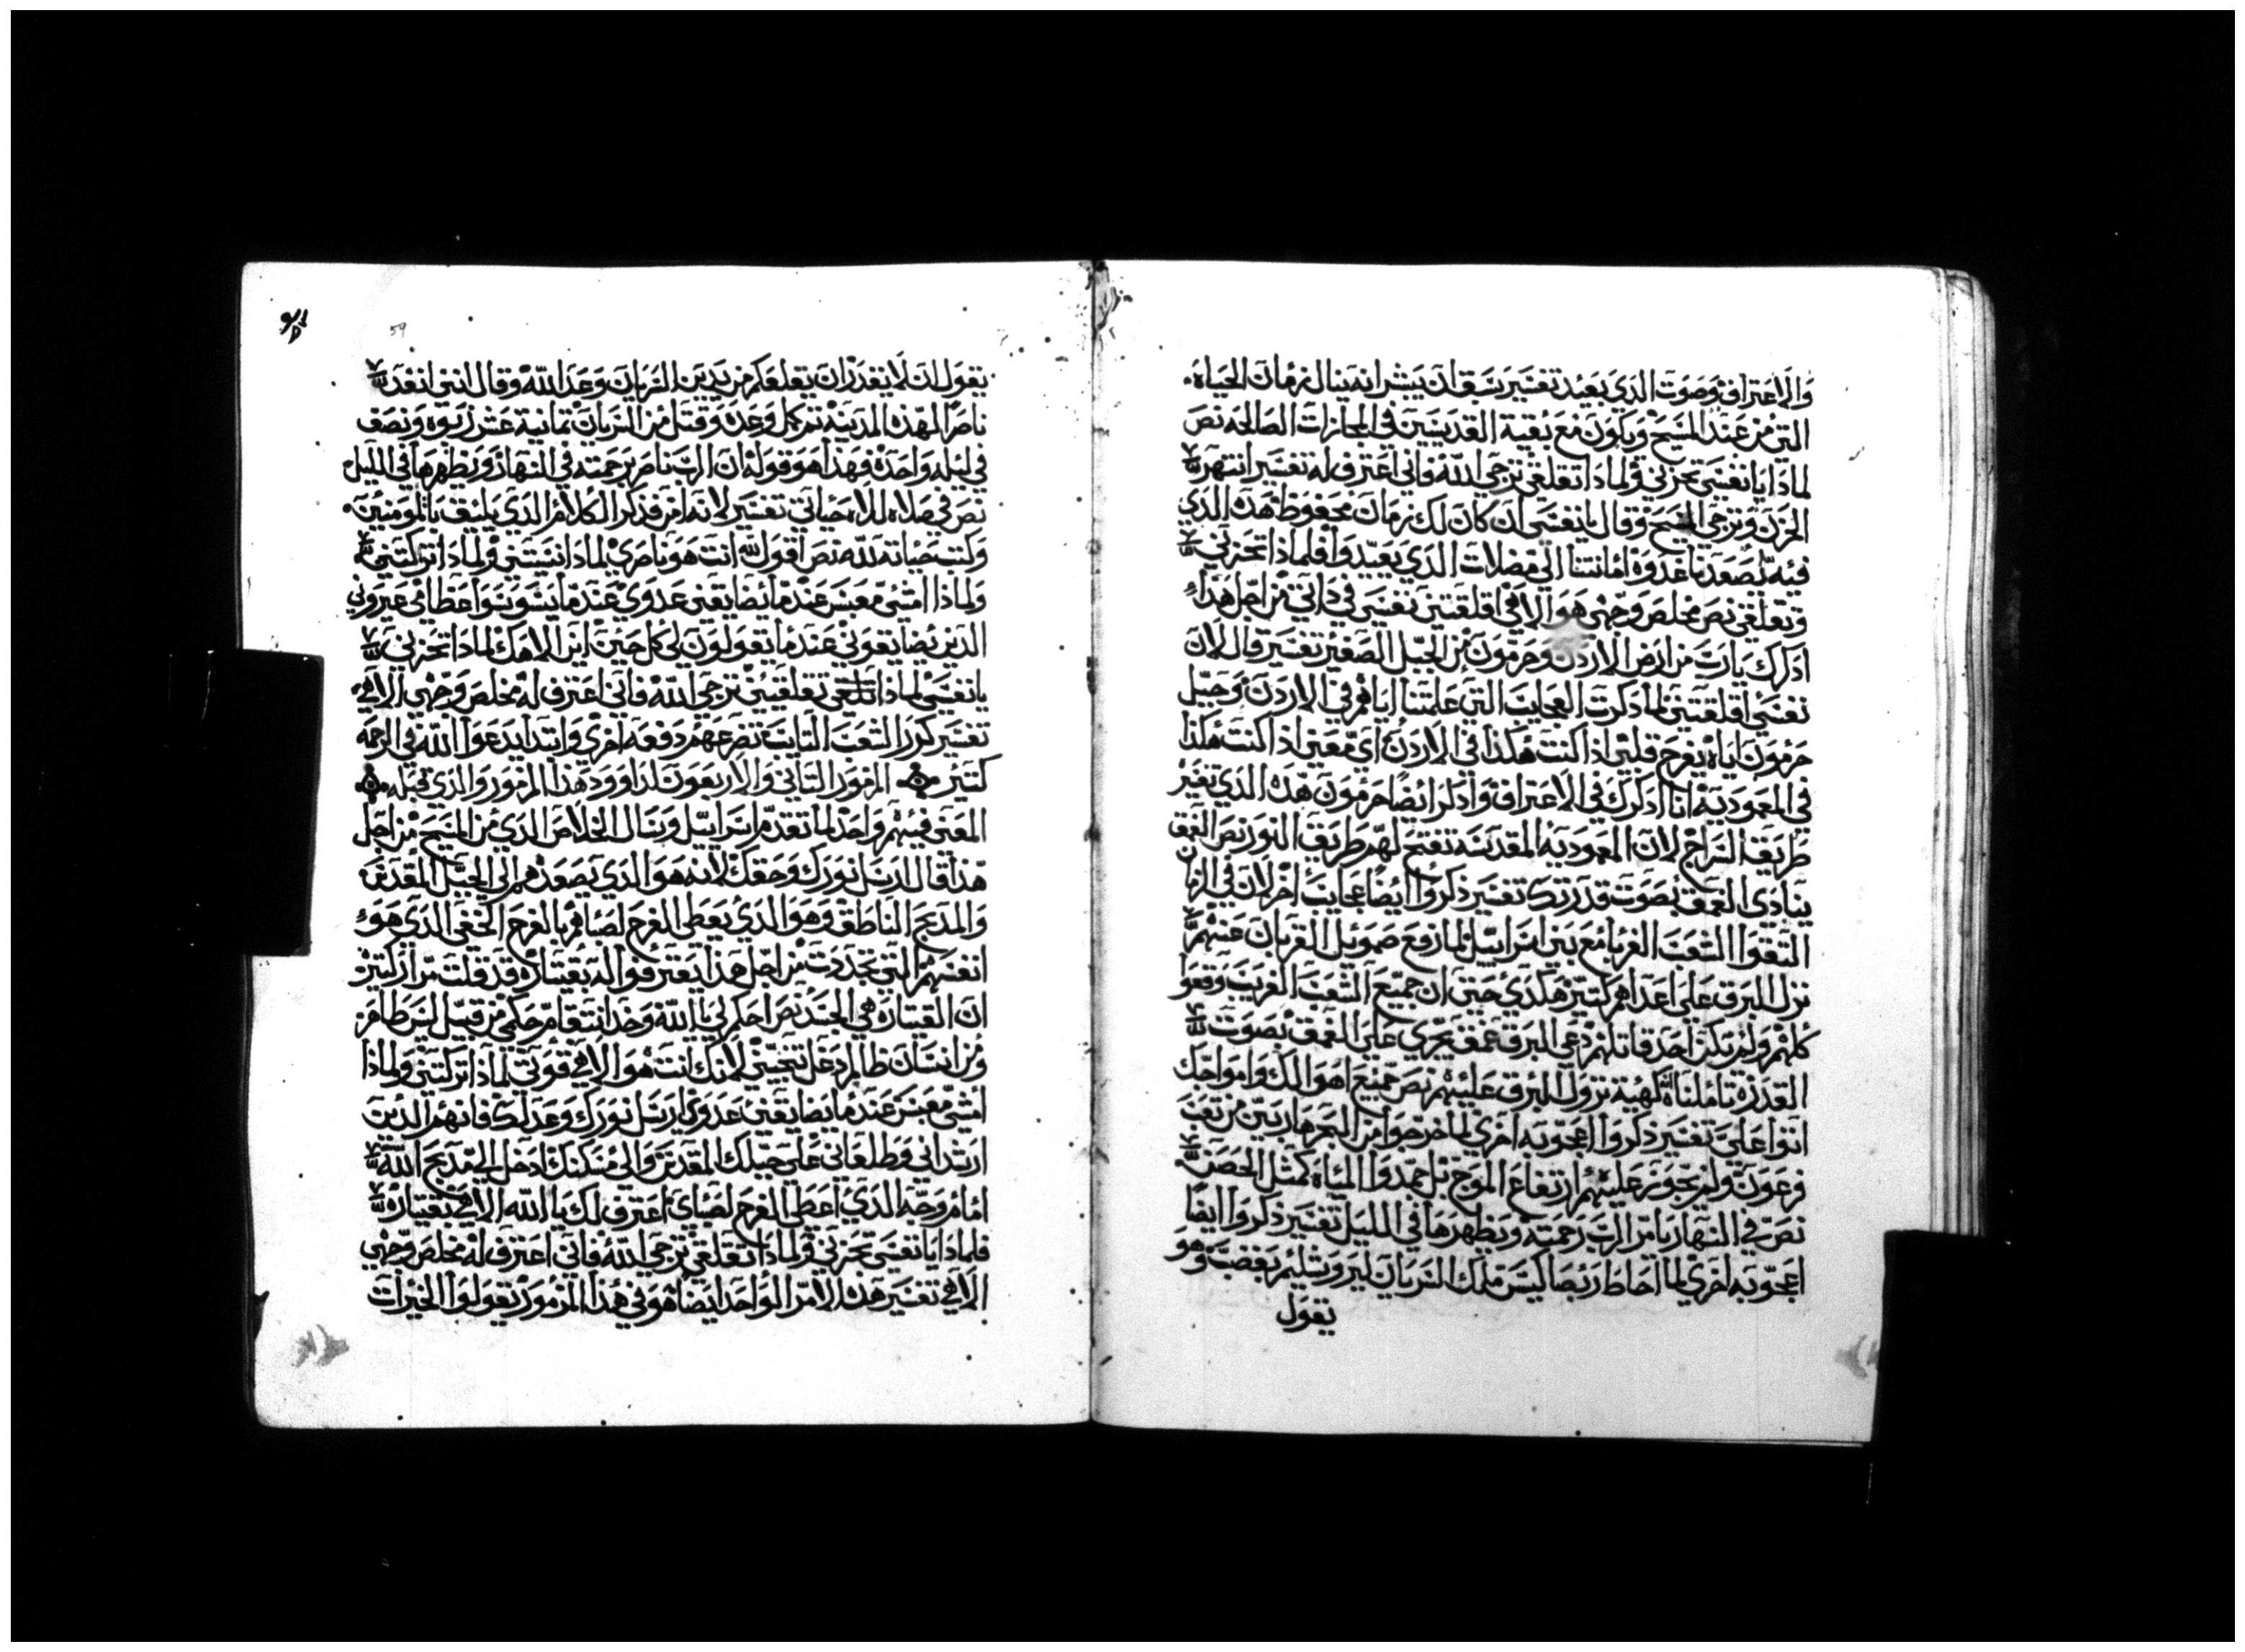 والاعتراف وصوت الذي يعيد تفسير سبق ان يبشر انه ينال زمان الحياه
التي من عند المسيح ويكون مع بقية القديسين في المجازات الصالحه نص
لماذا يا نفسي تحزني ولماذا تقلقي ترجي الله فاني اعترف له تفسير انتهر
الحزن وترجي المسيح وقال يا نفسي ان كان لك زمان محفوظ هذه الذي
فيه تصعدنا غدوة امانتنا الي مضلات الذي يعيدوا فلماذا تحزني
وتقلقي نص مخلص وجهي هو الاهي اقلقتني نفسي في داتي من اجل هذا
ادكرك يا رب من ارض الاردن وحرمون من الجبل الصغير تفسير قال لان
نفسي اقلقتني لما دكرت العجايب التي علمتنا اياهم في الاردن وجبل
حرمون اياه يفرح قلبي اذا كنت هكذا في الاردن اي معني اذا كنت هكذا
في المعموديه انا ادكرك في الاعتراف وادكر ايضا حرمون هذه الذي تفسير
طريق السراج لان المعموديه المقدسه تفتح لهم طريق النور نص الغمق
ينادي الغمق بصوت قدرتك تفسير ذكروا ايضا عجايب اخر لان في الزمان
التقوا الشعب الغربا مع بني اسراييل لما رفع صموييل القربان عنهم
نزل البرق علي اعداهم كتير هكدي حتي ان جميع الشعب الغريب وقعوا
كلهم ولم يكن احد قاتلهم دعي البرق غمق يجري علي الغمق بصوت
القدرة تاملنا كهية نزول البرق عليهم نص جميع اهوالك وامواجك
اتوا علي تفسير ذكروا اعجوبه اخري لما خرجوا من البحر هاربين من تعب
فرعون ولم يجوز عليهم ارتفاع الموج بل جمدوا المياه كمثل الحصن
نص في النهار يامر الرب رحمته ويظهرها في الليل تفسير ذكروا ايضا
اعجوبه اخري لما احاط ربصاكيس ملك السريان ليروشليم بغضب وهو
يقول
59
يقول ان لا يقدر ان يقلعكم من يدين السريان وعد الله وقال انني انقذ
ناصر لهذه المدينة تم كمل وعده وقتل من السريان تمانية عشر ربوه ونصف
في ليله واحدة فهذا هو قوله ان الرب ناصر برحمته في النهار ويظهرها في الليل
نص في صلاه للاه حياتي تفسير لانه امر فذكر الكلام الذي يليق بالمومنين
وكتب نصياته لله نص اقول لله انت هو ناصري لماذا نسيتني ولماذا تركتني
ولماذا امشي معبس عندما يضايقني عدوي عندما يسوسوا عظامي عيروني
الذين يضايقوني عندما يقولون لي كل حين اين الاهك لماذا تحزني
يا نفسي لماذا تقلقيني ترجي الله فاني اعترف له مخلص وجهي الاهي
تفسير كرر الشعب التابت تضرعهم دفعه اخري وابتدا يدعوا الله في الرحمه
كتير المزمور التاني والاربعون لداوود هذا المزمور والذي قبله
المعني فيهم واحد لما تقدم اسراييل وسال الخلاص الذي من المسيح من اجل
هذا قال ارسل نورك وحقك لانه هو الذي يصعدهم الي الجبل المقدس
والمدبح الناطق وهو الذي يعطي الفرح لصباهم بالفرح الحقي الذي هو
انفسهم التي تجددت من اجل هذا يعترفوا له بقيتاره قد قلت مرار كتير
ان القيتاره هي الجسد نص احكم لي يا الله وخد انتقام حكمي من قبيل ليس طاهر
ومن انسان ظالم دغل تنجيني لانك انت هو الاهي قوتي لماذا تركتني ولماذا
امشي معبس عندما يضايقني عدوي ارسل نورك وعدلك فانهم الذين
ارشداني وطلعاني علي جبلك المقدس والي مسكنك ادخل الي مدبح الله
امام وجه الذي اعطي الفرح لصباي اعترف لك يا الله الاهي بقيتاره
فلماذا يا نفسي تحزني ولماذا تقلقي ترجي الله فاني اعترف له مخلص وجهي
الاهي تفسير هذه الامر الواحد ايضا هو في هذا المزمور يقولوا الخيرات